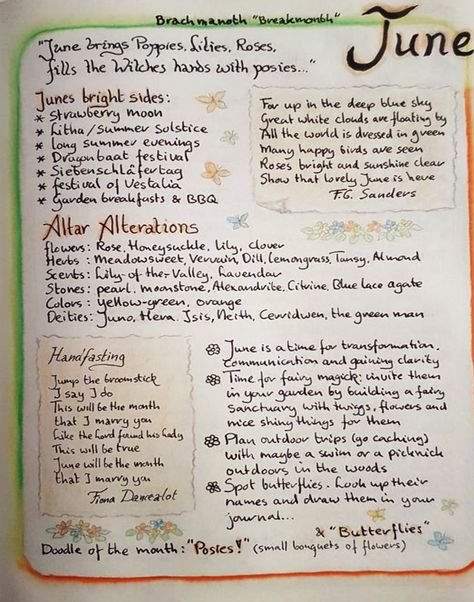 Brachmanoth "Breakmonth"
June
"June brings Poppies, Lilies, Roses,
fills the Witches hands with posies..."
Junes bright sides:
* strawberry moon
* Litha/summer solstice
* long summer evenings
* Dragonboat festival
* Siebenschläfertag
* festival of Vestalia
* Garden breakfasts & BBQ
For up in the deep blue sky
Great white clouds are floating by
All the world is dressed in green
Many happy birds are seen
Roses bright and sunshine clear
Show that lovely June is here
F.G. Sanders
Altar Alterations
flowers: Rose, Honeysuckle, Lily, clover
Herbs: Meadowsweet, Vervain, Dill, Lemongrass, Tansy, Almond
Scents: Lily-of-the-Valley, Lavendar
Stones: pearl, moonstone, Alexandrite, Citrine, Blue lace agate
Colors: yellow-green, orange
Deities: Juno, Hera, Isis, Neith, Cerridwen, the green man
Handfasting
Jump the broomstick
I say I do
This will be the month
that I marry you
Like the Lord found his Lady
This will be true
June will be the month
that I marry you
Fiona Dancealot
June is a time for transformation,
communication and gaining clarity
Time for fairy magick: invite them
in your garden by building a fairy
sanctuary with twigs, flowers and
nice shiny things for them
Plan outdoor trips (go caching)
with maybe a swim or a picknick
outdoors in the woods
Spot butterflies. Look up their
names and draw them in your
journal...
& "Butterflies"
Doodle of the month: "Posies!" (small bouquets of flowers)